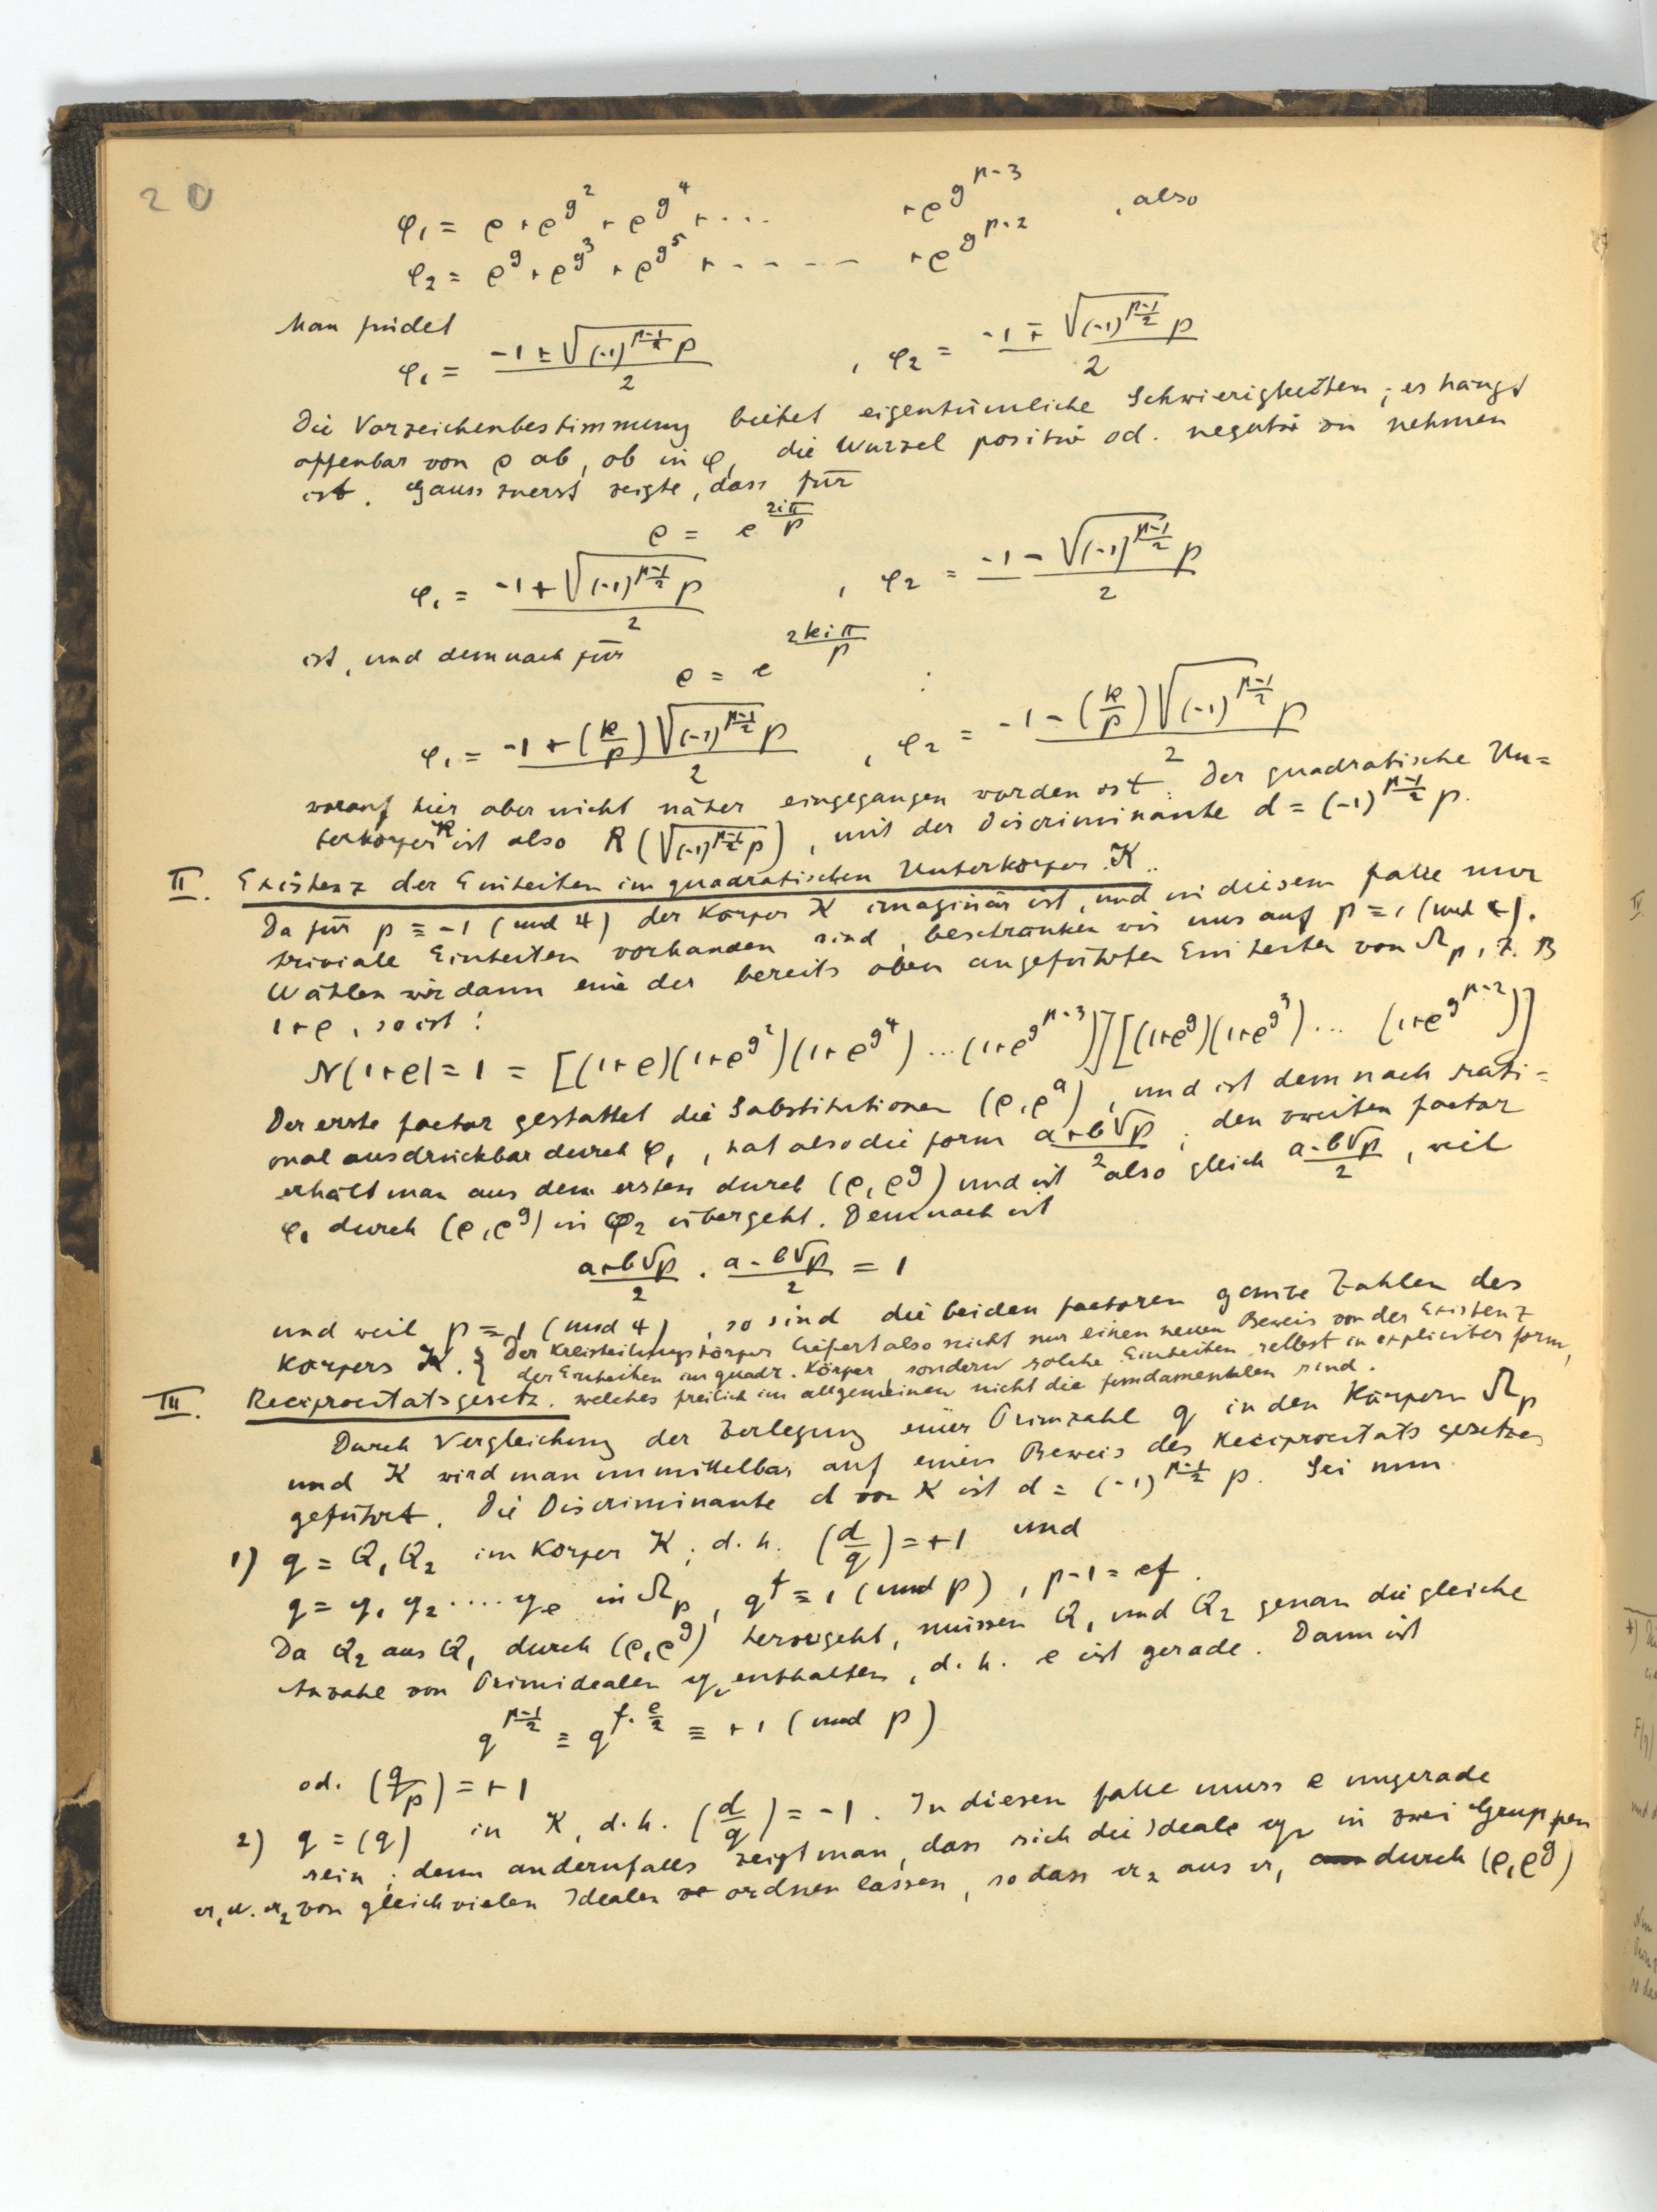 20
φ₁ = ρ + ρ^{g^2} + ρ^{g^4} + ... + ρ^{g^{p-3}} , also
φ₂ = ρ^g + ρ^{g^3} + ρ^{g^5} + ----- + ρ^{g^{p-2}}
Man findet
φ₁ = \frac{-1 ± \sqrt{(-1)^{\frac{p-1}{2}} p}}{2} , φ₂ = \frac{-1 ∓ \sqrt{(-1)^{\frac{p-1}{2}} p}}{2}
Die Vorzeichenbestimmung bietet eigentümliche Schwierigkeiten; es hängt
offenbar von ρ ab, ob in φ₁ die Wurzel positiv od. negativ zu nehmen
ist. Gauss zuerst zeigte, dass für
ρ = e^{\frac{2iπ}{p}}
φ₁ = \frac{-1 + \sqrt{(-1)^{\frac{p-1}{2}} p}}{2} , φ₂ = \frac{-1 - \sqrt{(-1)^{\frac{p-1}{2}} p}}{2}
ist, und demnach für
ρ = e^{\frac{2kiπ}{p}} :
φ₁ = \frac{-1 + (\frac{k}{p}) \sqrt{(-1)^{\frac{p-1}{2}} p}}{2} , φ₂ = \frac{-1 - (\frac{k}{p}) \sqrt{(-1)^{\frac{p-1}{2}} p}}{2}
worauf hier aber nicht näher eingegangen worden ist. Der quadratische Un=
terkörper K ist also R(\sqrt{(-1)^{\frac{p-1}{2}} p}), mit der Discriminante d = (-1)^{\frac{p-1}{2}} p.
II. Existenz der Einheiten im quadratischen Unterkörper K.
Da für p ≡ -1 (mod 4) der Körper K imaginär ist, und in diesem Falle nur
triviale Einheiten vorhanden sind, beschränken wir uns auf p ≡ 1 (mod 4).
Wählen wir dann eine der bereits oben angeführten Einheiten von Ω_p, z. B
1+ρ, so ist:
N(1+ρ) = 1 = [(1+ρ)(1+ρ^{g^2})(1+ρ^{g^4}) ... (1+ρ^{g^{p-3}})][(1+ρ^g)(1+ρ^{g^3}) ... (1+ρ^{g^{p-2}})]
Der erste Factor gestattet die Substitutionen (ρ, ρ^a), und ist demnach rati=
onal ausdrückbar durch φ₁, hat also die Form \frac{a+b\sqrt{p}}{2}; den zweiten Factor
erhält man aus dem ersten durch (ρ, ρ^g) und ist also gleich \frac{a-b\sqrt{p}}{2}, weil
φ₁ durch (ρ, ρ^g) in φ₂ übergeht. Demnach ist
\frac{a+b\sqrt{p}}{2} . \frac{a-b\sqrt{p}}{2} = 1
und weil p ≡ 1 (mod 4), so sind die beiden Factoren ganze Zahlen des
Körpers K. { Der Kreisteilungskörper liefert also nicht nur einen neuen Beweis von der Existenz
der Einheiten im quadr. Körper, sondern solche Einheiten selbst in expliciter Form,
welches freilich im allgemeinen nicht die fundamentalen sind.
III. Reciprocitätsgesetz.
Durch Vergleichung der Zerlegung einer Primzahl q in den Körpern Ω_p
und K wird man unmittelbar auf einen Beweis des Reciprocitätsgesetzes
geführt. Die Discriminante d von K ist d = (-1)^{\frac{p-1}{2}} p. Sei nun
1) q = Q₁ Q₂ im Körper K; d. h. (\frac{d}{q}) = +1 und
q = 𝔮₁ 𝔮₂ .... 𝔮_e in Ω_p, q^f ≡ 1 (mod p), p-1 = ef.
Da Q₂ aus Q₁ durch (ρ, ρ^g) hervorgeht, müssen Q₁ und Q₂ genau die gleiche
Anzahl von Primidealen 𝔮_i enthalten, d. h. e ist gerade. Dann ist
q^{\frac{p-1}{2}} ≡ q^{f·\frac{e}{2}} ≡ +1 (mod p)
od. (\frac{q}{p}) = +1
2) q = (q) in K, d. h. (\frac{d}{q}) = -1. In diesem Falle muss e ungerade
sein; denn andernfalls zeigt man, dass sich die Ideale 𝔮_i in zwei Gruppen
𝔞₁ u. 𝔞₂ von gleichvielen Idealen ordnen lassen, so dass 𝔞₂ aus 𝔞₁ durch (ρ, ρ^g)